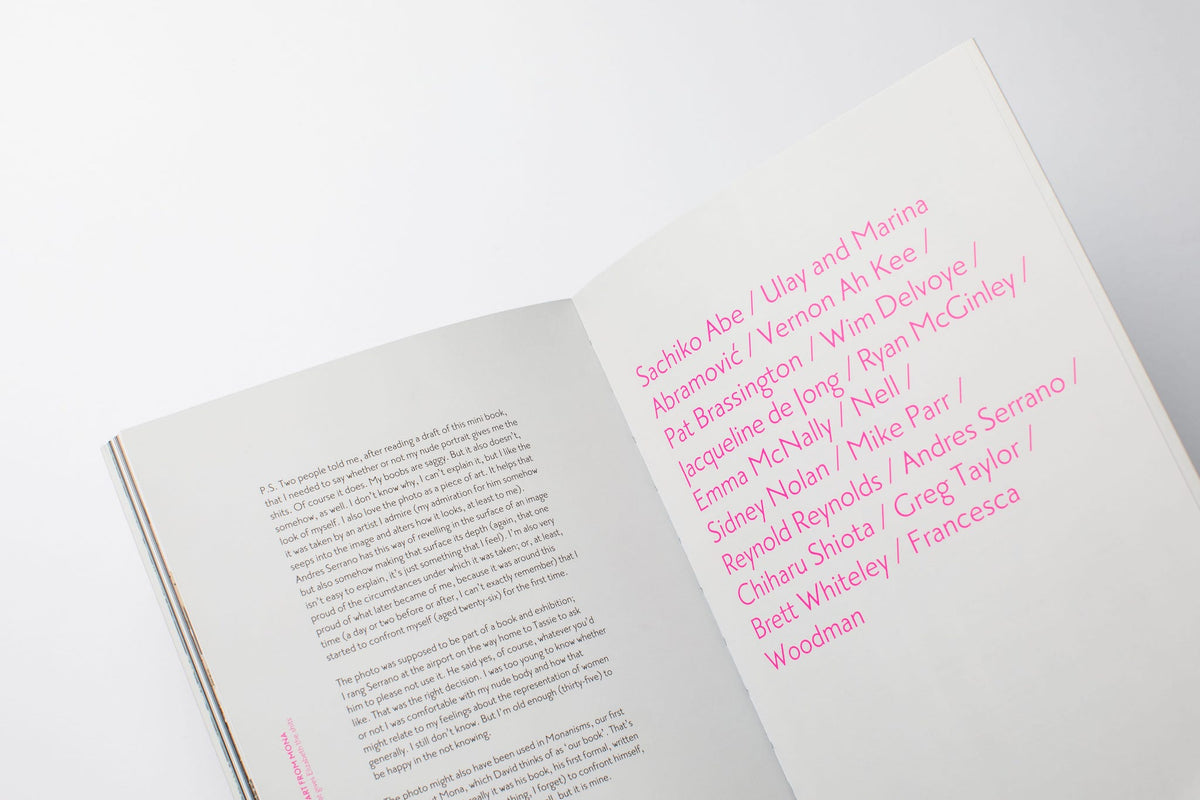 P.S. Two people told me, after reading a draft of this mini book,
that I needed to say whether or not my nude portrait gives me the
shits. Of course it does. My boobs are saggy. But it also doesn't,
somehow, as well. I don't know why, I can't explain it, but I like the
look of myself. I also love the photo as a piece of art. It helps that
it was taken by an artist I admire (my admiration for him somehow
seeps into the image and alters how it looks, at least to me).
Andres Serrano has this way of revelling in the surface of an image
but also somehow making that surface its depth (again, that one
isn't easy to explain, it's just something that I feel). I'm also very
proud of the circumstances under which it was taken; or, at least,
proud of what later became of me, because it was around this
time (a day or two before or after, I can't exactly remember) that I
started to confront myself (aged twenty-six) for the first time.
The photo was supposed to be part of a book and exhibition;
I rang Serrano at the airport on the way home to Tassie to ask
him to please not use it. He said yes, of course, whatever you'd
like. That was the right decision. I was too young to know whether
or not I was comfortable with my nude body and how that
might relate to my feelings about the representation of women
generally. I still don't know. But I'm old enough (thirty-five) to
be happy in the not knowing.
The photo might also have been used in Monanisms, our first
at Mona, which David thinks of as 'our book'. That's
really it was his book, his first formal, written
thing, I forget) to confront himself,
but it is mine.
ART FROM MONA
gives Elizabeth the shits
Sachiko Abe / Ulay and Marina
Abramović / Vernon Ah Kee /
Pat Brassington / Wim Delvoye /
Jacqueline de Jong / Ryan McGinley /
Emma McNally / Nell /
Sidney Nolan / Mike Parr /
Reynold Reynolds / Andres Serrano /
Chiharu Shiota / Greg Taylor /
Brett Whiteley / Francesca
Woodman